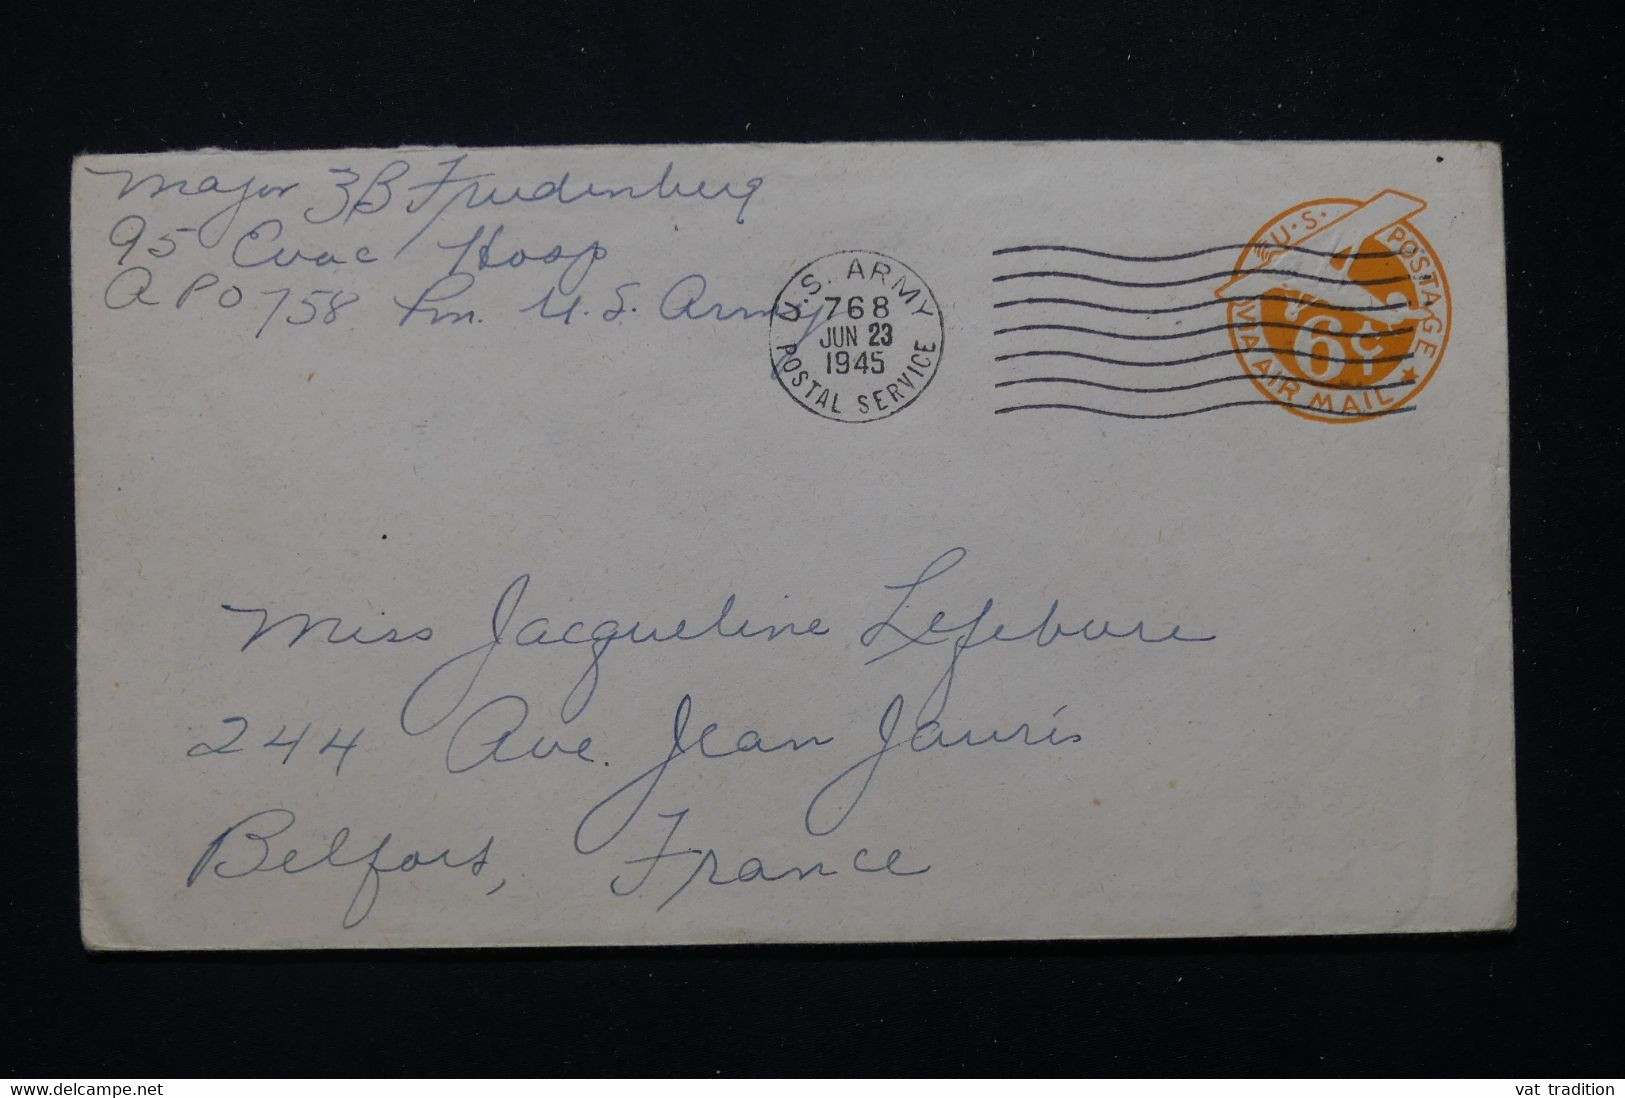 Major 3B Frudenberg
95 Evac Hosp
APO 758 Pm. U.S. Army
U.S. ARMY
768
JUN 23
1945
POSTAL SERVICE
U.S. POSTAGE
6¢
VIA AIR MAIL
Miss Jacqueline Lefebure
244 Ave. Jean Jauris
Belfort, France
www.delcampe.net
vat_tradition